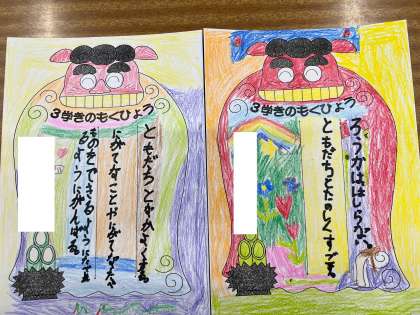 3学きのもくひょう
ともだちとなかよくする
にがてなことやにがてなたべ
ものをできるようになれ
るようにがんばる
3学きのもくひょう
ろうかははしらない
ともだちとたのしくすごす